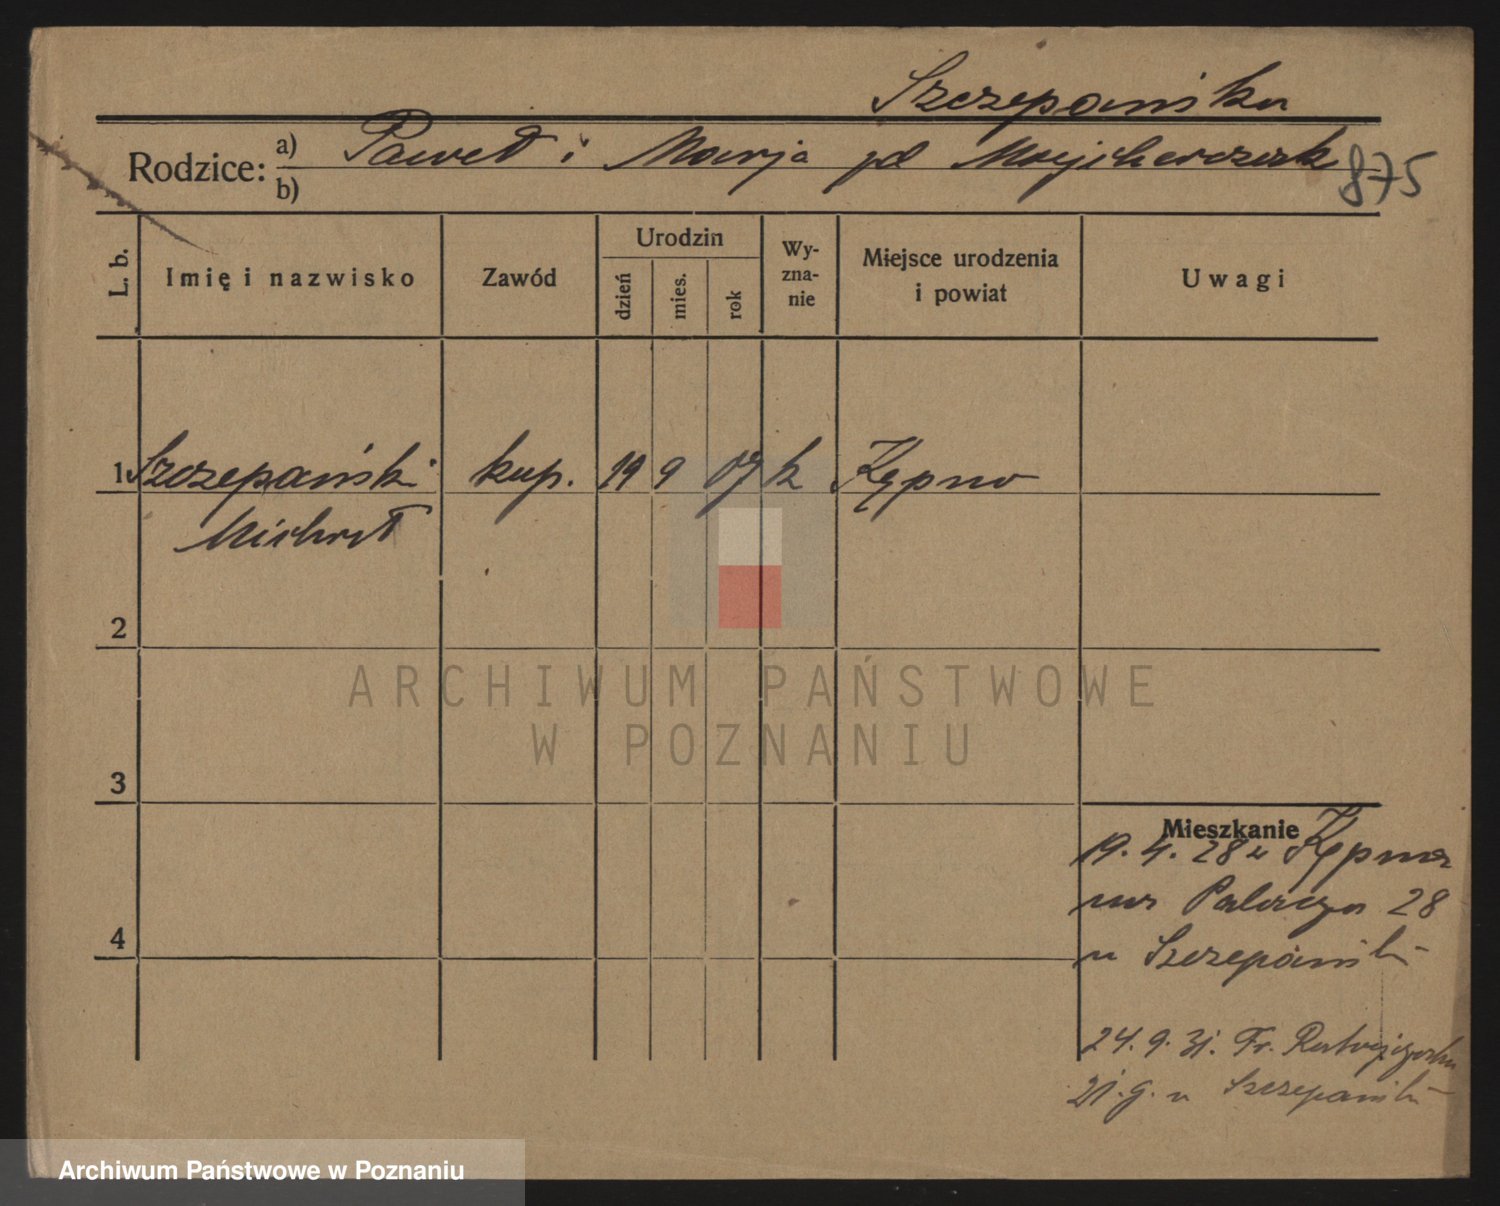 Szczepański
Rodzice: a) Paweł i Marja zd
b)
875
L. b.
Imię i nazwisko
Zawód
Urodzin
dzień
mies.
rok
Wy-
zna-
nie
Miejsce urodzenia
i powiat
Uwagi
1 Szczepański kup. 19 9 07 k Kępno
Michał
2
ARCHIWUM PAŃSTWOWE
W POZNANIU
3
Mieszkanie
19. 4. 28 z Kępna
28
u Szczepański
4
24. 9. 31. Fr. Ratajczaka
21. g. u Szczepański
Archiwum Państwowe w Poznaniu